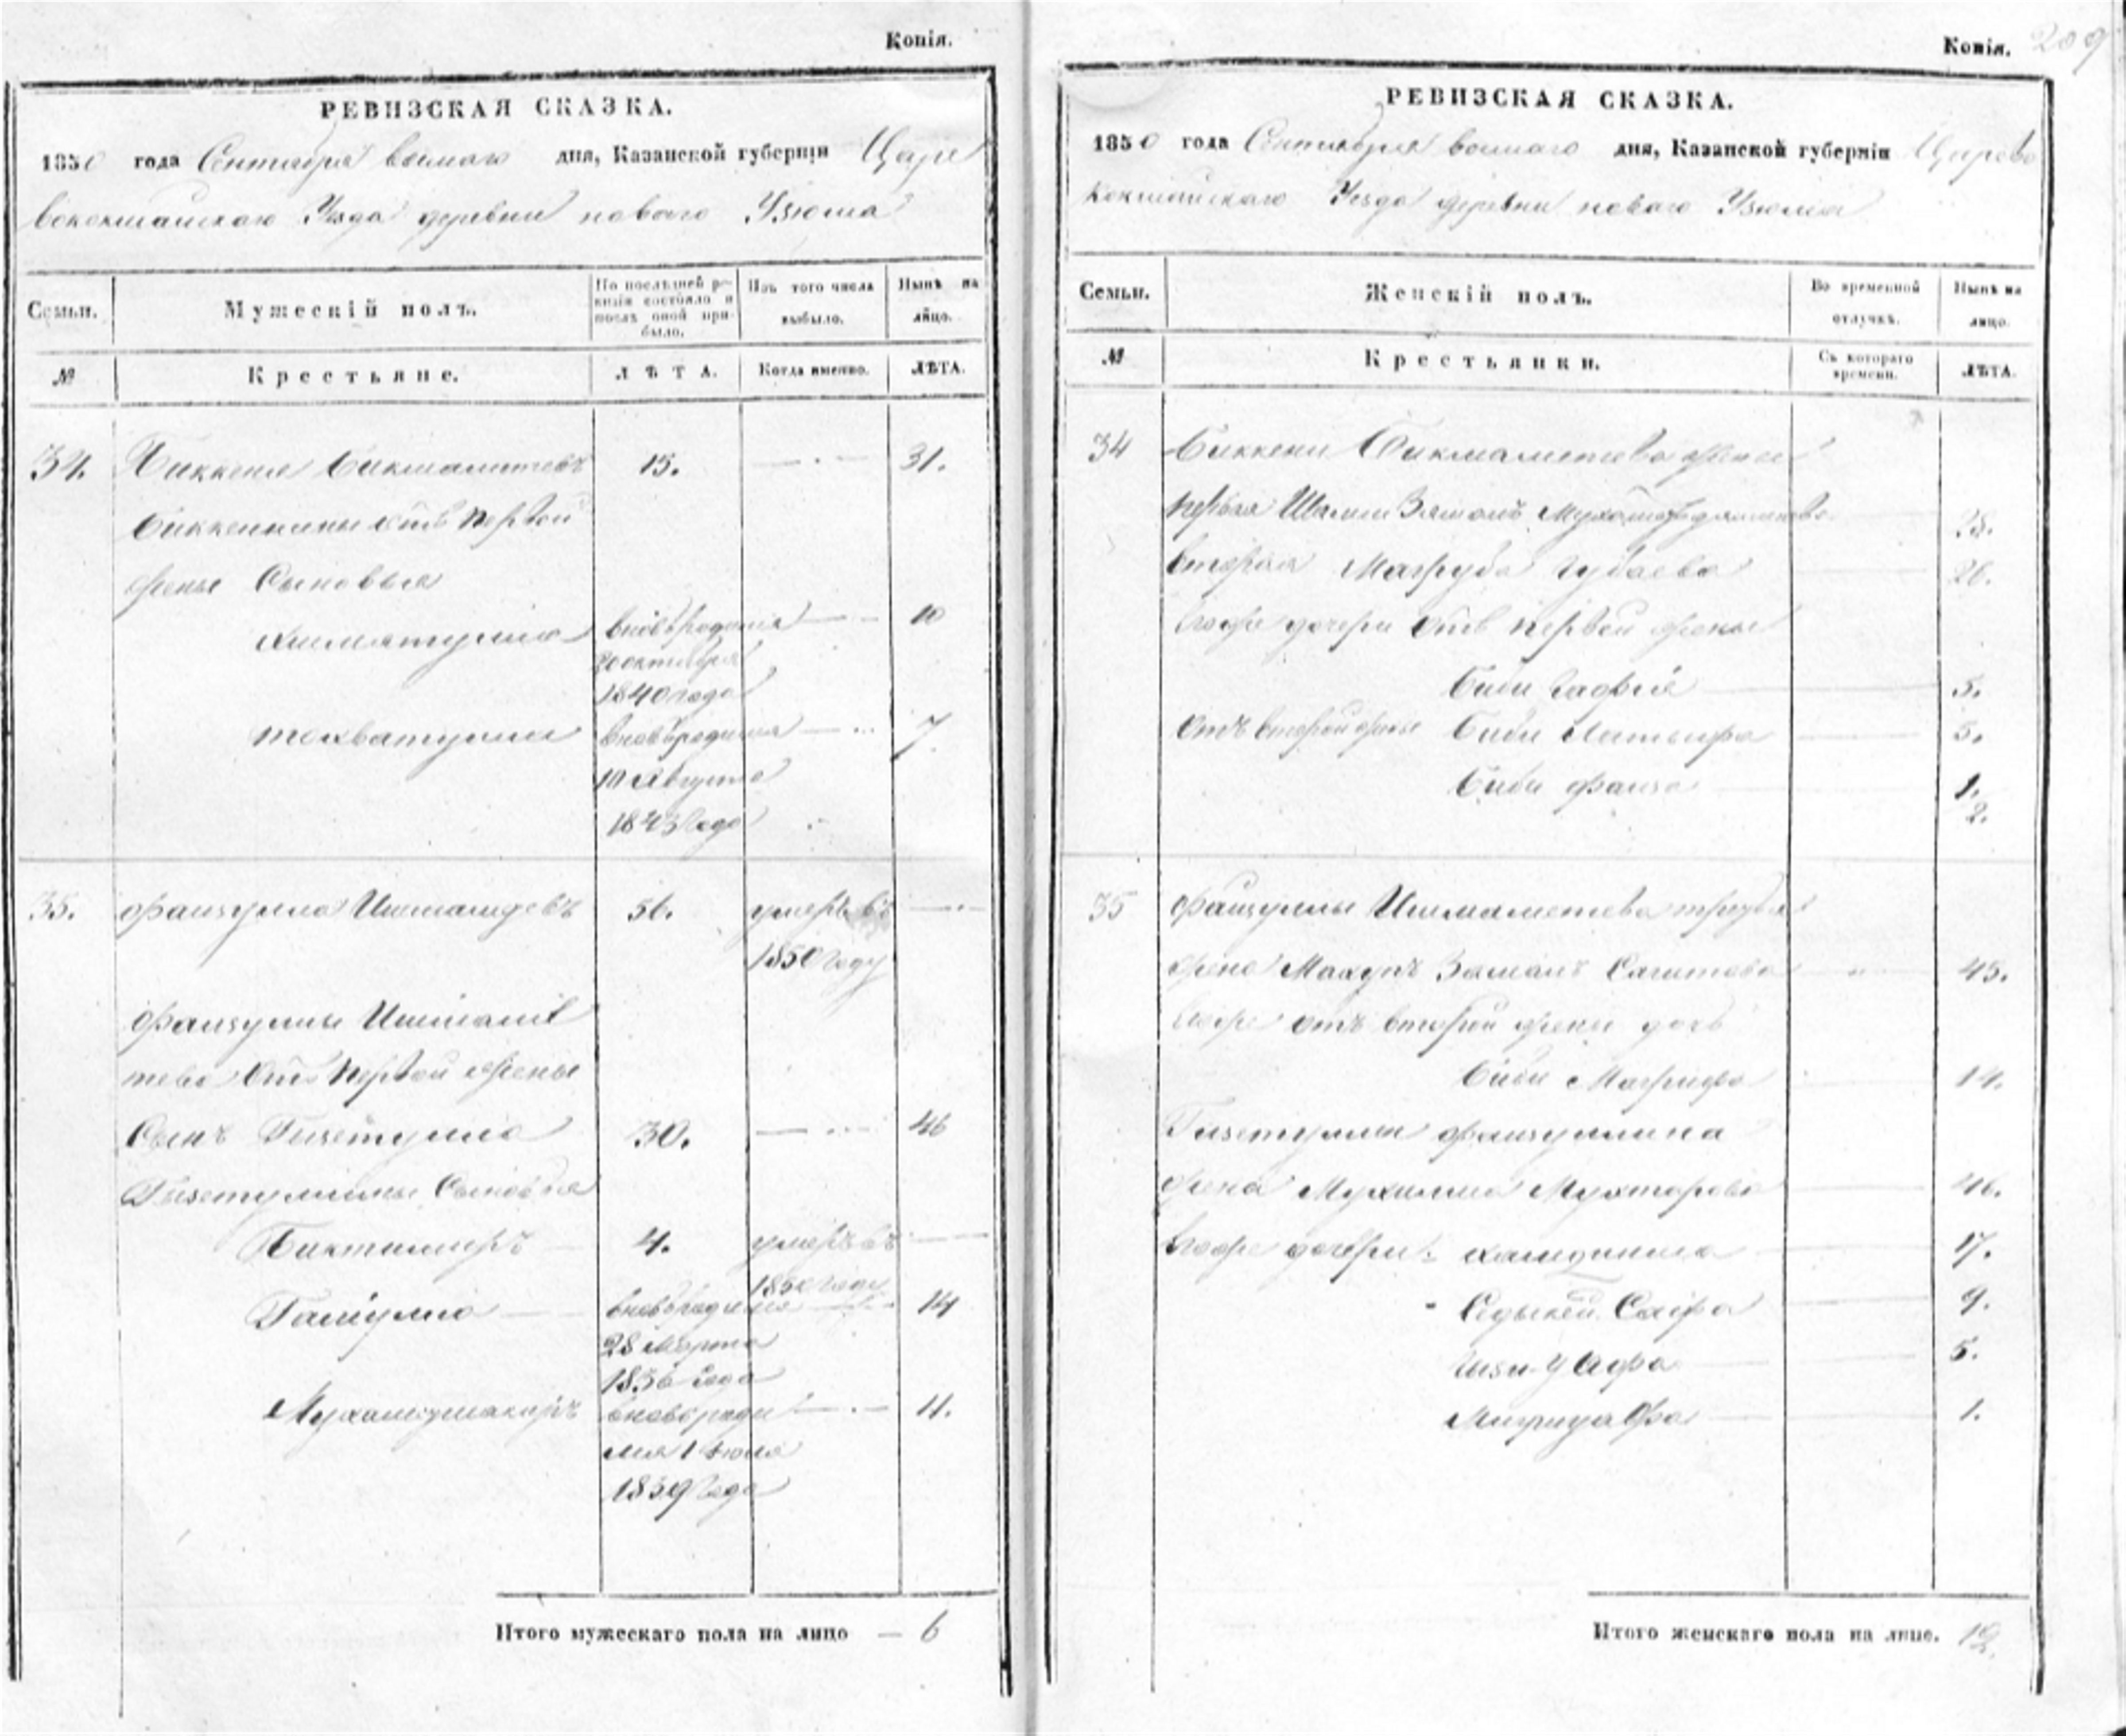 Копія.
РЕВИЗСКАЯ СКАЗКА.
1850 года Сентября дня, Казанской губерніи Царе
вококшайскаго Уезда деревни новаго Узюма
Семьи.
Мужескій полъ.
По послѣдней ре-
визіи состояло и
послѣ оной при-
было.
Изъ того числа
выбыло.
Нынѣ на
лицо.
№
Крестьяне.
ЛѢТА.
Когда именно.
ЛѢТА.
34. Биккеня Бикмаметевъ 15. 31.
Биккенины отъ первой
жены Сыновья
вновь родился 10
20 октября
1840 года
тохватулла вновь родился 7.
10 Августа
1843 года
35. Файзулла 56. умеръ въ
1850 году
Файзуллы
тева отъ первой жены
Сынъ Гизетулла 30. 46
Гизетуллины Сыновья
Биктимиръ 4. умеръ въ
1850 году
Галіулла вновь родился 14
28 Марта
1836 года
вновь роди 11.
лся 1 Июля
1839 года
Итого мужескаго пола на лицо — 6
Копія. 209
РЕВИЗСКАЯ СКАЗКА.
1850 года Сентября дня, Казанской губерніи Царево
кокшайскаго Уезда деревни новаго Узюма
Семьи.
Женскій полъ.
Во временной
отлучкѣ.
Нынѣ на
лицо.
№
Крестьянки.
Съ котораго
времени.
ЛѢТА.
34 Биккени Бикмаметева жены
первая 28.
вторая Магруба Губаева 26.
Егоже дочери отъ первой жены
Биби 5.
отъ второй жены Биби Латыфа 5.
Биби Фаиза 1.
2.
35 Файзуллы Ишмаметева третья
жена Заманъ Сагитова 45.
Егоже отъ второй жены дочь
Биби Магрифа 14.
Гизетуллы Файзуллина
жена Мухтарова 46.
Егоже дочери: 17.
9.
5.
1.
Итого женскаго пола на лице. 12.